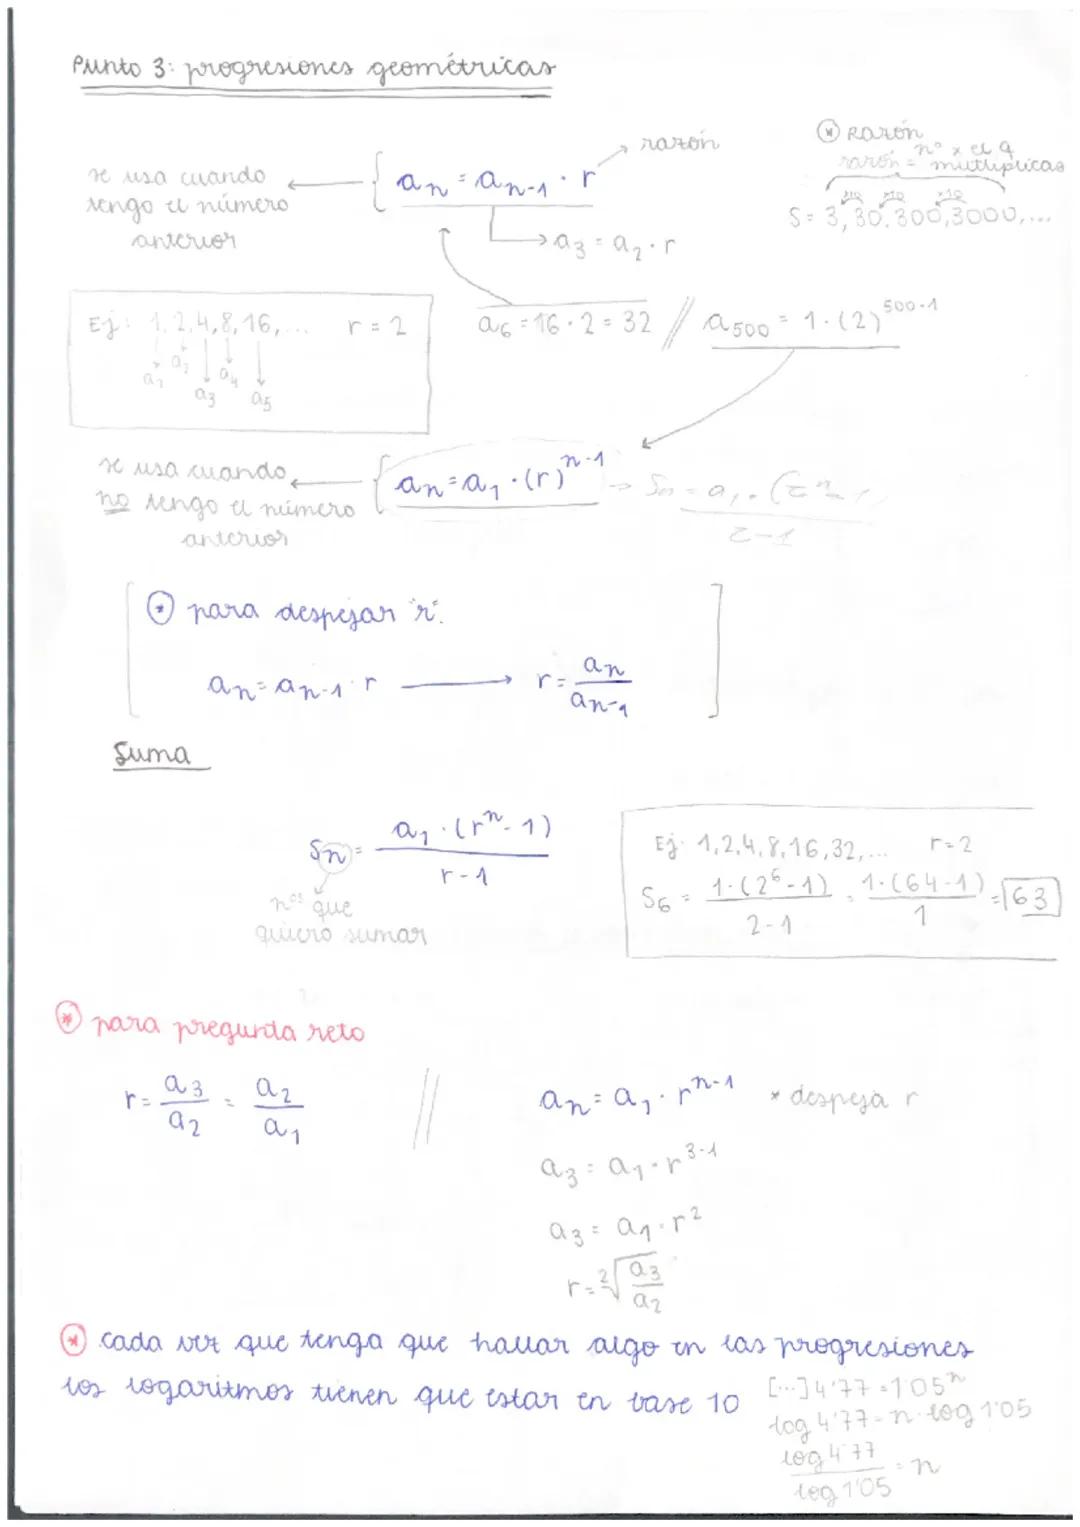 Punto 3: progresiones geométricas
⊛ Razón
razón = nº x el q multiplicas
x10 x10 x10
S = 3, 30, 300, 3000, ...
se usa cuando
tengo el número
anterior
aₙ = aₙ₋₁ · r
razón
a₃ = a₂ · r
Ej: 1, 2, 4, 8, 16, ... r = 2
a₁ a₂ a₃ a₄ a₅
a₆ = 16 · 2 = 32 // a₅₀₀ = 1 · (2)⁵⁰⁰⁻¹
se usa cuando
no tengo el número
anterior
aₙ = a₁ · (r)ⁿ⁻¹ → Sₙ = a₁ · (rⁿ - 1) / r - 1
⊛ para despejar "r":
aₙ = aₙ₋₁ · r → r = aₙ / aₙ₋₁
Suma
Sₙ = a₁ · (rⁿ - 1) / r - 1
nºs que
quiero sumar
Ej: 1, 2, 4, 8, 16, 32, ... r = 2
S₆ = 1 · (2⁶ - 1) / 2 - 1 = 1 · (64 - 1) / 1 = 63
⊛ para pregunta reto
r = a₃ / a₂ = a₂ / a₁ //
aₙ = a₁ · rⁿ⁻¹ * despeja r
a₃ = a₁ · r³⁻¹
a₃ = a₁ · r²
r = ²√(a₃ / a₂)
⊛ cada vez que tenga que hallar algo en las progresiones
los logaritmos tienen que estar en base 10
[...] 4'77 = 1'05ⁿ
log 4'77 = n · log 1'05
log 4'77 / log 1'05 = n